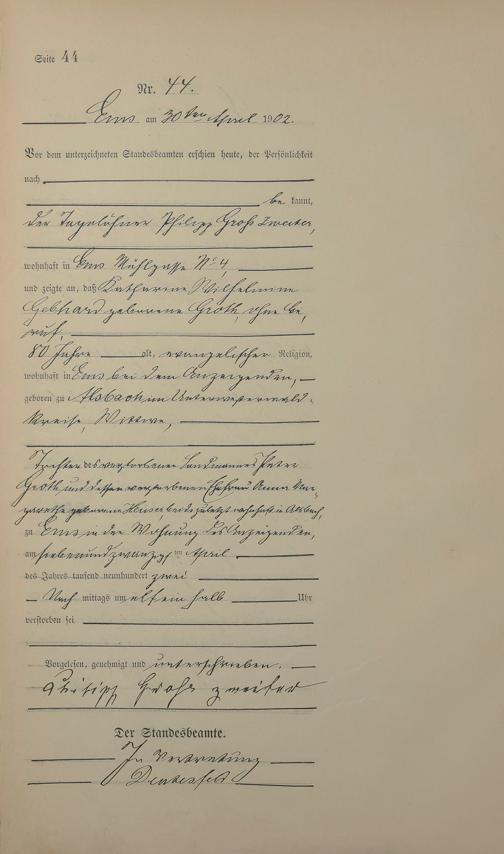 Seite 44
Nr. 44.
Ems am 30ten April 1902.
Vor dem unterzeichneten Standesbeamten erschien heute, der Persönlichkeit
nach
be kannt,
der Tagelöhner Philipp Groß zweiter,
wohnhaft in Ems Mühlgasse No 4,
und zeigte an, daß Katharine Wilhelmine
Gebhard geborene Groth, ohne Be,
ruf,
80 Jahre alt, evangelischer Religion,
wohnhaft in Ems bei dem Anzeigenden,
geboren zu im Unterwesterwald-
kreise, Wittwe,
Tochter des verstorbenen Landmannes Peter
Groth und dessen verstorbenen Ehefrau Anna Mar-
garethe geborene beide zuletzt wohnhaft in
zu Ems in der Wohnung des Anzeigenden,
am siebenundzwanzigsten April
des Jahres tausend neunhundert zwei
Nach mittags um elf ein halb Uhr
verstorben sei
Vorgelesen, genehmigt und unterschrieben.
Philipp Groß zweiter
Der Standesbeamte.
In Vertretung